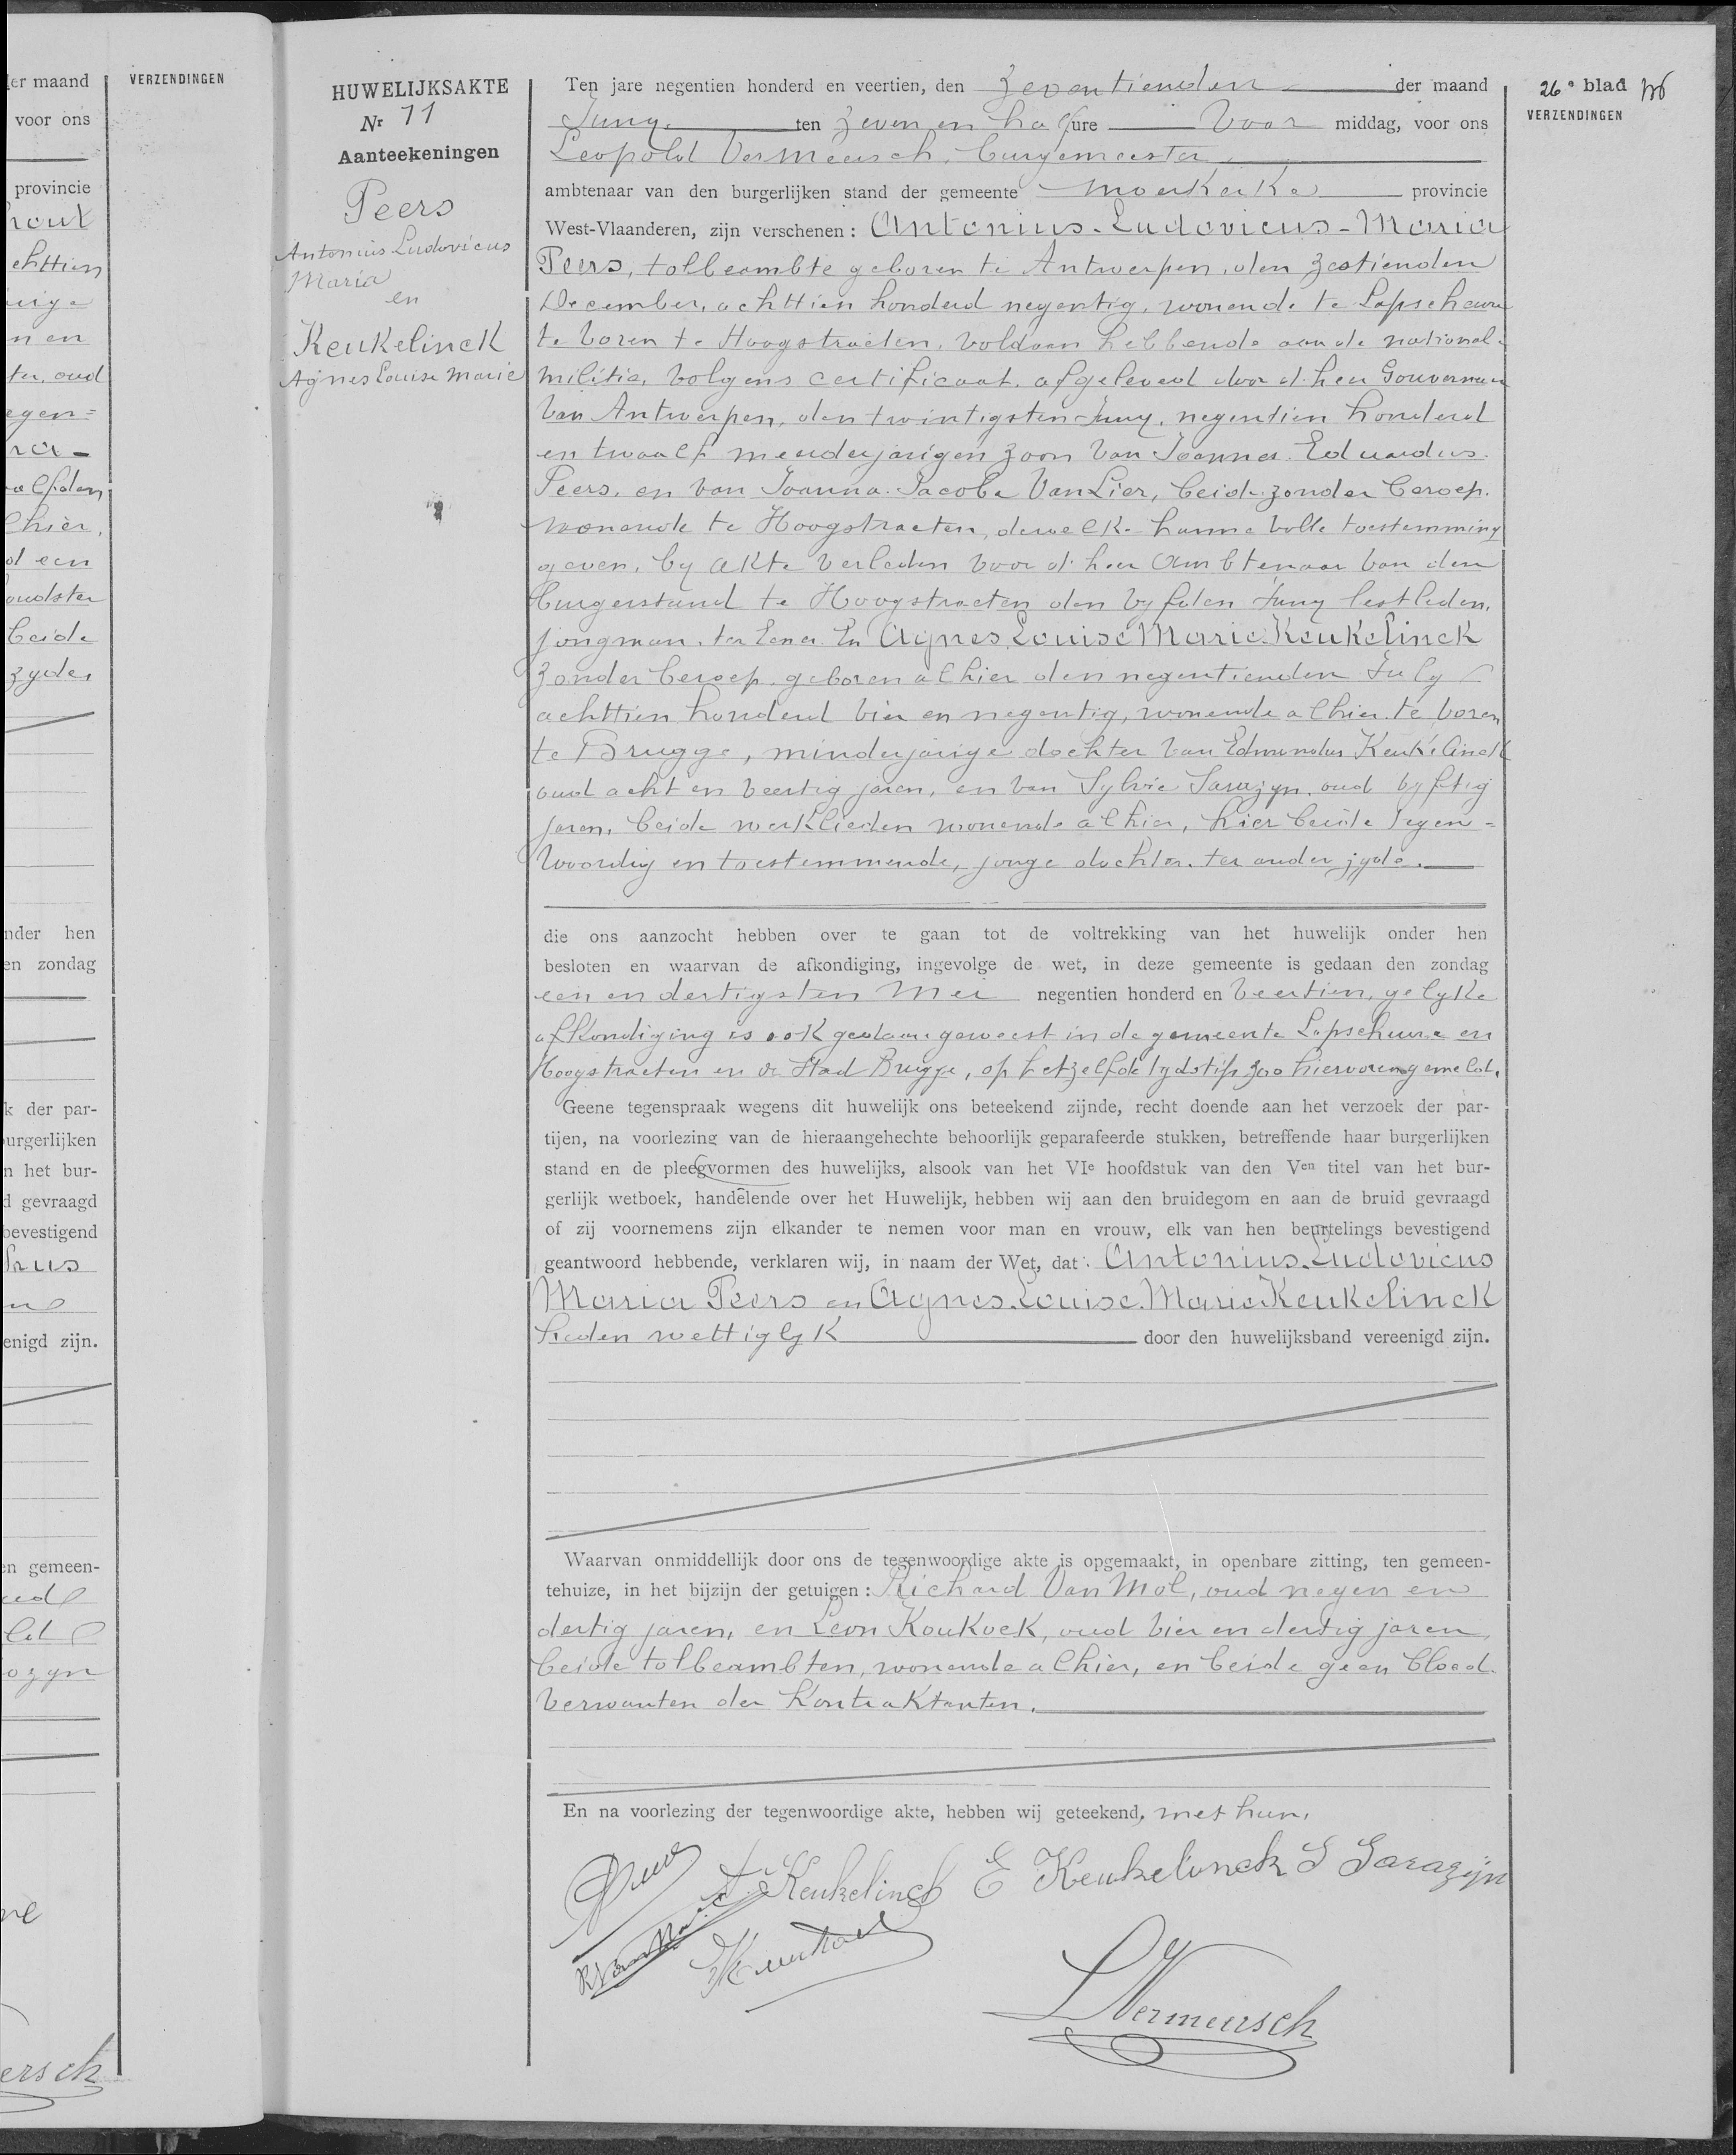 der maand
voor ons
provincie
hout
chttien
nen
ter, oud
egen=
ra-
alfden
lhier,
d een
oudster
beide
zyde,
nder hen
en zondag
k der par-
urgerlijken
n het bur-
d gevraagd
bevestigend
enigd zijn.
en gemeen-
ozyn
ne
ersch
VERZENDINGEN
HUWELIJKSAKTE
Nr 11
Aanteekeningen
Peers
Antonius Ludovicus
Maria
en
Keukelinck
Agnes Louise Marie
Ten jare negentien honderd en veertien, den zeventienden der maand
Juny ten zeven en half ure Voor middag, voor ons
Leopold Vermeersch, burgemeester,
ambtenaar van den burgerlijken stand der gemeente Moerkerke provincie
West-Vlaanderen, zijn verschenen: Antonius-Ludovicus-Maria
Peers, tolbeambte geboren te Antwerpen, den zestienden
December, achttien honderd negentig, wonende te Lapscheure
te voren te Hoogstraeten, voldaan hebbende aan de nationale
militie, volgens certificaat afgeleverd door d'heer Gouverneur
van Antwerpen, den twintigsten Juny, negentien honderd
en twaalf meerderjarigen zoon van Joannes Eduardus
Peers, en van Joanna Jacoba Van Lier, beide zonder beroep,
wonende te Hoogstraeten, dewelke hunne volle toestemming
geven, by akte verleden voor d'heer Ambtenaar van den
burgerstand te Hoogstraeten den vyfden Juny lestleden,
jongman, ter eener. En Agnes Louise Marie Keukelinck
zonder beroep, geboren alhier den negentienden July
achttien honderd vier en negentig, wonende alhier te voren
te Brugge, minderjarige dochter van Edmondus Keukelinck
oud acht en veertig jaren, en van Sylvie Sarazyn, oud vyftig
jaren, beide werklieden wonende alhier, hier beide tegen=
woordig en toestemmende, jonge dochter, ter ander zyde.
die ons aanzocht hebben over te gaan tot de voltrekking van het huwelijk onder hen
besloten en waarvan de afkondiging, ingevolge de wet, in deze gemeente is gedaan den zondag
een en dertigsten Mei negentien honderd en veertien, gelyke
afkondiging is ook gedaan geweest in de gemeente Lapscheure en
Hoogstraeten en de Stad Brugge, op hetzelfde tydstip zoo hiervoren gemeld.
Geene tegenspraak wegens dit huwelijk ons beteekend zijnde, recht doende aan het verzoek der par-
tijen, na voorlezing van de hieraangehechte behoorlijk geparafeerde stukken, betreffende haar burgerlijken
stand en de pleegvormen des huwelijks, alsook van het VIe hoofdstuk van den Ven titel van het bur-
gerlijk wetboek, handelende over het Huwelijk, hebben wij aan den bruidegom en aan de bruid gevraagd
of zij voornemens zijn elkander te nemen voor man en vrouw, elk van hen beurtelings bevestigend
geantwoord hebbende, verklaren wij, in naam der Wet, dat: Antonius Ludovicus
Maria Peers en Agnes Louise Marie Keukelinck
heden wettiglyk door den huwelijksband vereenigd zijn.
Waarvan onmiddellijk door ons de tegenwoordige akte is opgemaakt, in openbare zitting, ten gemeen-
tehuize, in het bijzijn der getuigen: Richard Van Mol, oud negen en
dertig jaren, en Leon Koukoek, oud vier en dertig jaren,
beide tolbeambten, wonende alhier, en beide geen bloed
verwanten der kontraktanten.
En na voorlezing der tegenwoordige akte, hebben wij geteekend, met hun.
Peers A. Keukelinck E Keukelinck S Sarazijn
LVermeersch
26e blad
VERZENDINGEN